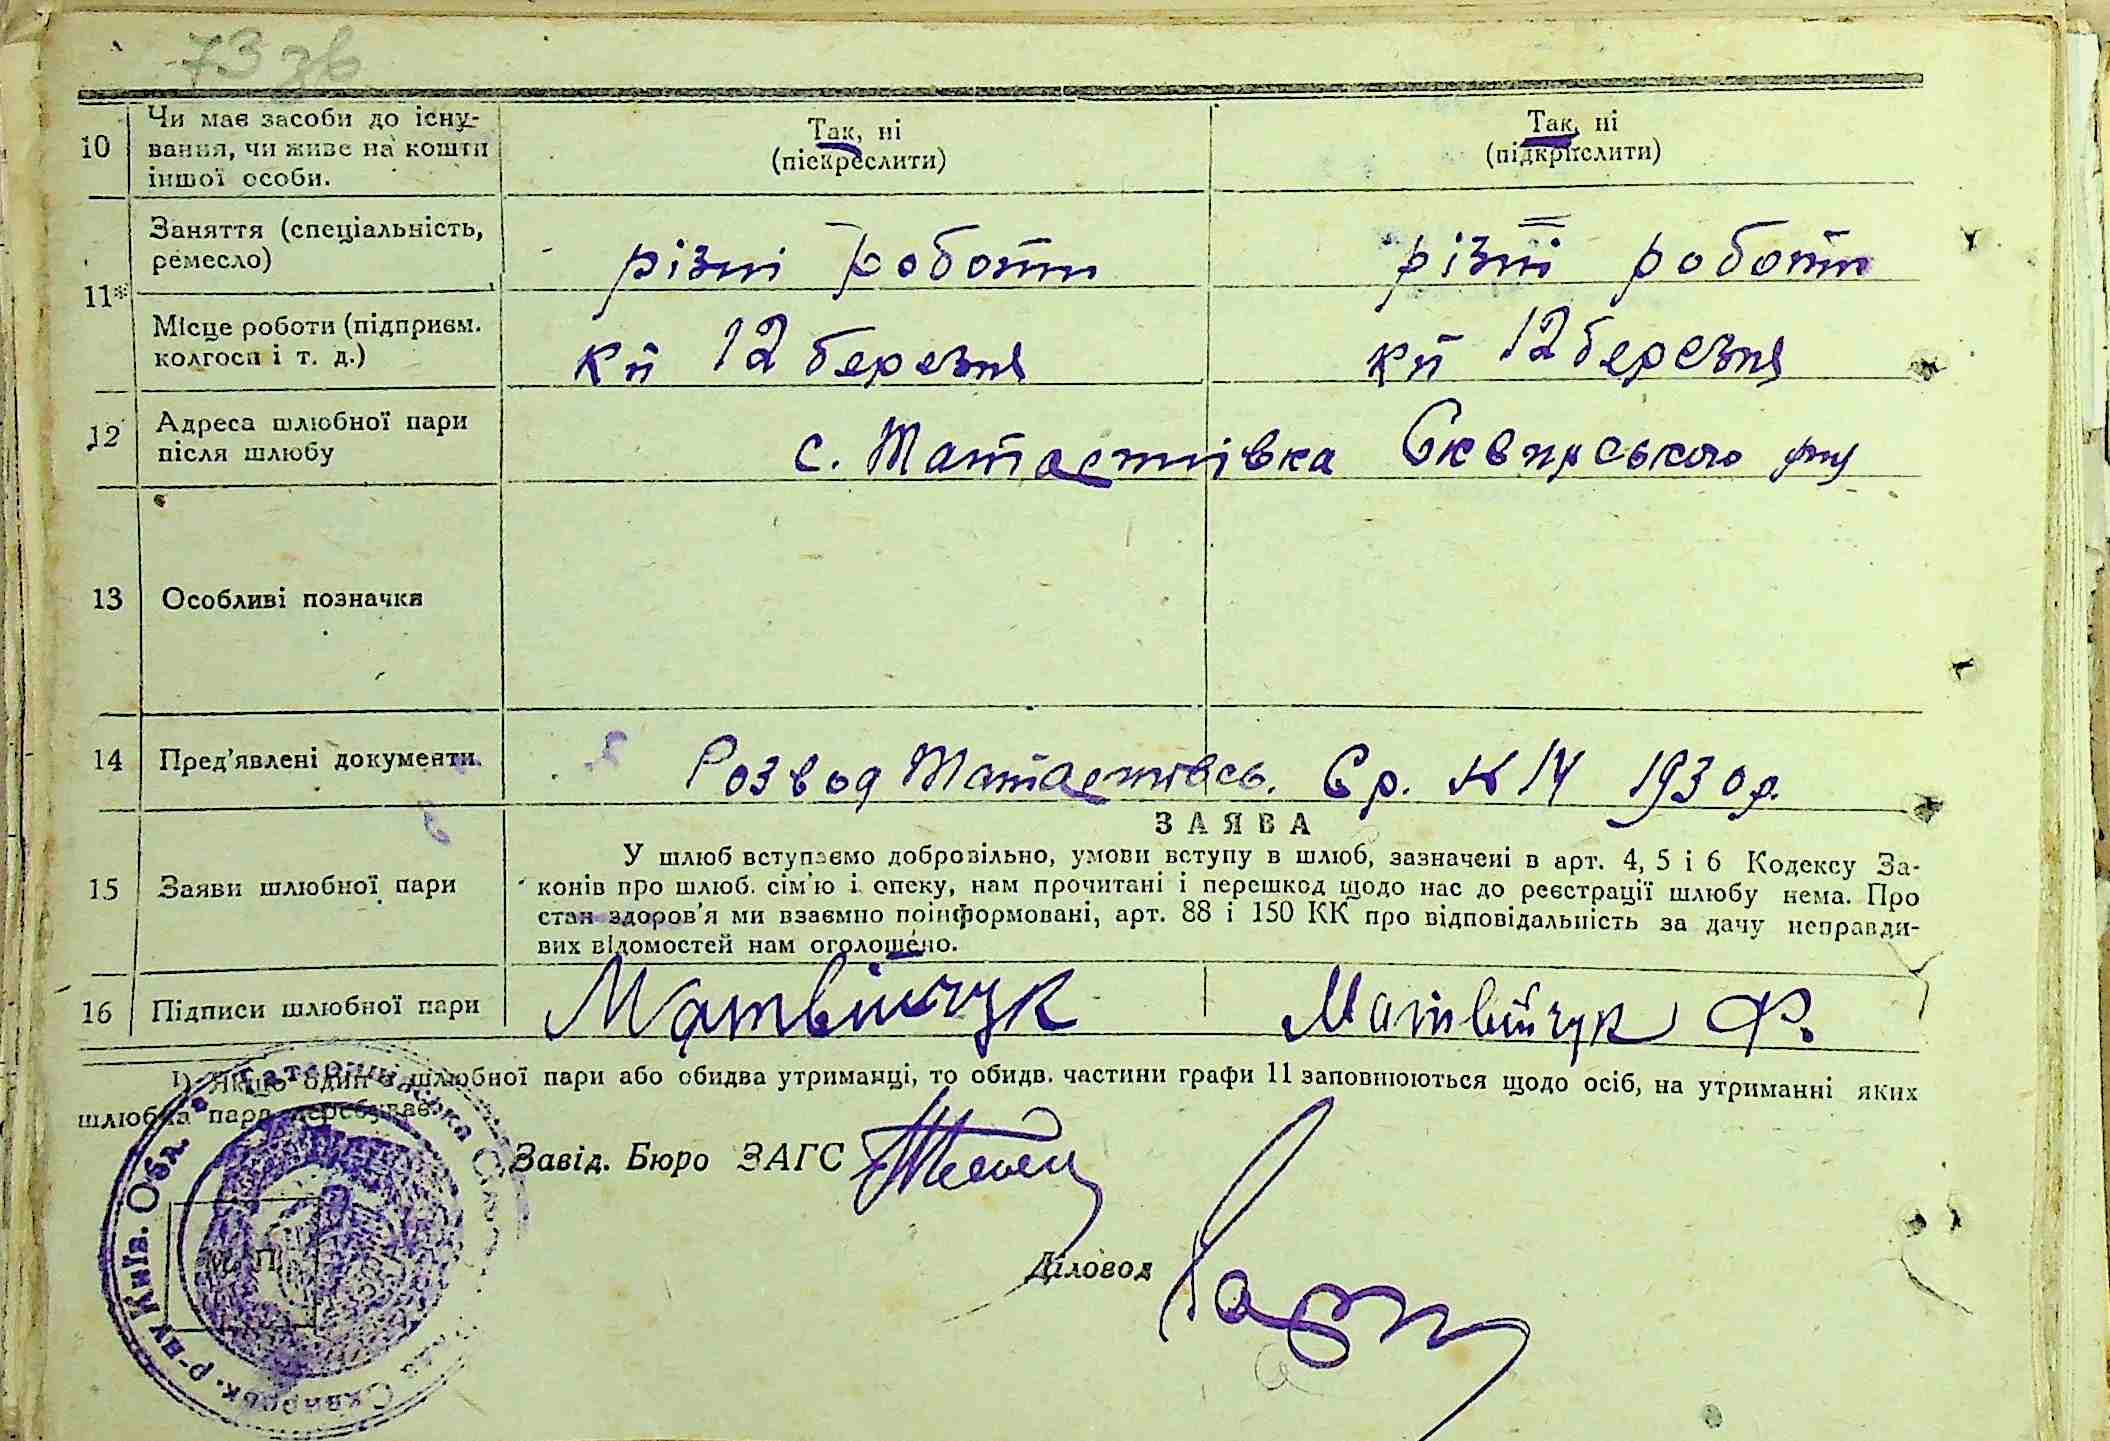 73 зв
10
Чи має засоби до існу-
вання, чи живе на кошти
іншої особи.
Так, ні
(піскреслити)
Так, ні
(підкріслити)
11*
Заняття (спеціальність,
ремесло)
різні роботи
різні роботи
Місце роботи (підприєм.
колгосп і т. д.)
кп 12 березня
кп 12 березня
12
Адреса шлюбної пари
після шлюбу
с. Татаринівка Сквирського р-ну
13
Особливі позначки
14
Пред'явлені документи
Розвод Татаринівсь. Ср. К 14 1930 р.
15
Заяви шлюбної пари
ЗАЯВА
У шлюб вступаємо добровільно, умови вступу в шлюб, зазначені в арт. 4, 5 і 6 Кодексу За-
конів про шлюб. сім'ю і опеку, нам прочитані і перешкод щодо нас до реєстрації шлюбу нема. Про
стан здоров'я ми взаємно поінформовані, арт. 88 і 150 КК про відповідальність за дачу неправди-
вих відомостей нам оголошено.
16
Підписи шлюбної пари
Матвійчук
Матвійчук Ф.
1) Якщо один з шлюбної пари або обидва утриманці, то обидв. частини графи 11 заповнюються щодо осіб, на утриманні яких
шлюбна пара перебуває.
Завід. Бюро ЗАГС
Діловод
М. П.
р-ну Київ. Обл.